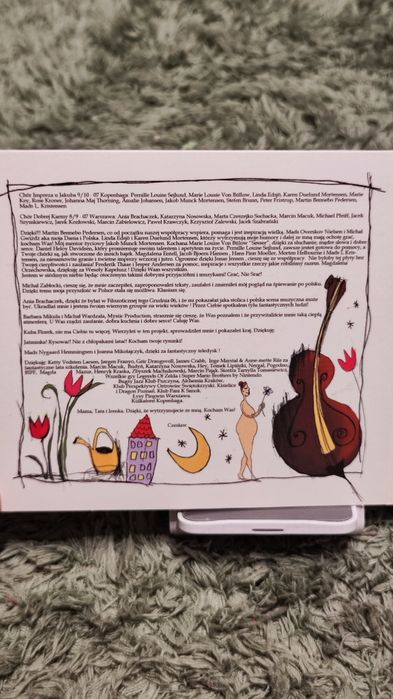 Chór Impreza u Jakuba 9/10 - 07 Kopenhaga: Pernille Louise Sejlund, Marie Louise Von Bülow, Linda Edsjö, Karen Duelund Mortensen, Marie
Key, Rose Kroner, Johanna Maj Thorning, Amalie Johansen, Jakob Munck Mortensen, Stefan Bruun, Peter Fristrup, Martin Bennebo Pedersen,
Mads L. Kristensen

Chór Dobrej Karmy 8/9 - 07 Warszawa: Ania Brachaczek, Katarzyna Nosowska, Marta Czeszejko-Sochacka, Marcin Macuk, Michael Pfeiff, Jacek
Szymkiewicz, Jarek Kozłowski, Marcin Zabielowicz, Paweł Krawczyk, Krzysztof Zalewski, Jacek Szabrański

Dzięki!!! Martin Bennebo Pedersen, co od początku naszej współpracy wspiera, pomaga i jest inspiracją wielką. Mads Ovesekov Nielsen i Michał
Gwiżdż aka moja Dania i Polska. Linda Edsjö i Karen Duelund Mortensen, którzy wytrzymują moje humory i dalej ze mną mają ochotę grać,
kocham Was! Mój mentor życiowy Jakob Munck Mortensen. Kochana Marie Louise Von Bülow "Søster", dzięki za słuchanie, mądre słowa i dobre
serce. Daniel Heløy Davidsen, który promieniuje swoim talentem i apetytem na życie. Pernille Louise Sejlund, zawsze jesteś gotowa do pomocy, a
Twoje chórki są, jak stworzone do moich bajek. Magdalena Enteil, Jacob Bjoern Hansen, Hans Finn Moeller, Morten Hellborne i Mads L. Kris-
tensen, za niesamowite granie i świetne imprezy wczoraj i jutro. Ogromne dzięki Jonas Jensen, cieszę się ze współpracy. Nie byłoby tej płyty bez
Twojej cierpliwości i zaufania. Henrik Thaas i Jeper Andersen za pomoc, inspiracje i wszystkie rzeczy jakie robiliśmy razem. Magdalena
Orzechowska, dziękuję za Wesoły Kapelusz ! Dzięki Wam wszystkim.
Jestem w siódmym niebie będąc otoczonym takimi dobrymi przyjaciółmi i muzykami! Grać, Nie Srać!

Michał Zabłocki, cieszę się, że mnie zaczepiłeś, zaproponowałeś teksty, zaufałeś i zmieniłeś mój pogląd na śpiewanie po polsku.
Dzięki temu moja przyszłość w Polsce stała się możliwa. Kłaniam się.

Ania Brachaczek, dzięki że byłaś w Filozoficznej tego Grudnia 06, i że mi pokazałaś jaka stolica i polska scena muzyczna może
być. Ukradłaś mnie i jestem twoim wiernym groupie na wieki wieków ! Przez Ciebie spotkałem tylu fantastycznych ludzi!

Barbara Mikuła i Michał Wardzała, Mystic Production, strasznie się cieszę, że Was poznałem i że przywitaliście mnie taką ciepłą
atmosferą. U Was znajdź zaufanie, dobra kuchnia i dobre serce! Całuję Was.

Kuba Florek, nie ma Ciebie tu więcej. Wierzyłeś w ten projekt, sprowadziłeś mnie i pokazałeś kraj. Dziękuję.

Jarzmiński! Kysowac! Nic z chłopakami latac! Kocham twoje rysunki!

Mads Nygaard Hemmingsen i Joanna Mikołajczyk, dzięki za fantastyczny teledysk !

Dziękuję: Ketty Vedsted Laesøe, Jørgen Frazera, Geir Draugsvoll, James Crabb, Inge Marstal & Anne-mette Riis za
fantastyczne lata szkolenia. Marcin Macuk, Budyń, Katarzyna Nosowska, Hey, Tomek Lipiński, Nergal, Pogodno,
BIFF, Magda Mazur, Henryk Kraska, Zbyszek Machałowski, Marcin Pająk, Siostra Tarsylla Tomaszewicz,
Wszystkie gry Legends Of Zelda i Super Mario Brothers by Nintendo.
Bugsy Jazz Klub Pszczyna, Alchemia Kraków,
Klub Perspektywy Ostrowiec Świętokrzyski, Kisielice
i Dragon Poznań, Klub Pasa K Sanok,
Łysy Pingwin Warszawa,
Kulkafeen Kopenhaga.

Mama, Tata i Irenka. Dzięki, że wytrzymujecie ze mną. Kocham Was!

Czesław